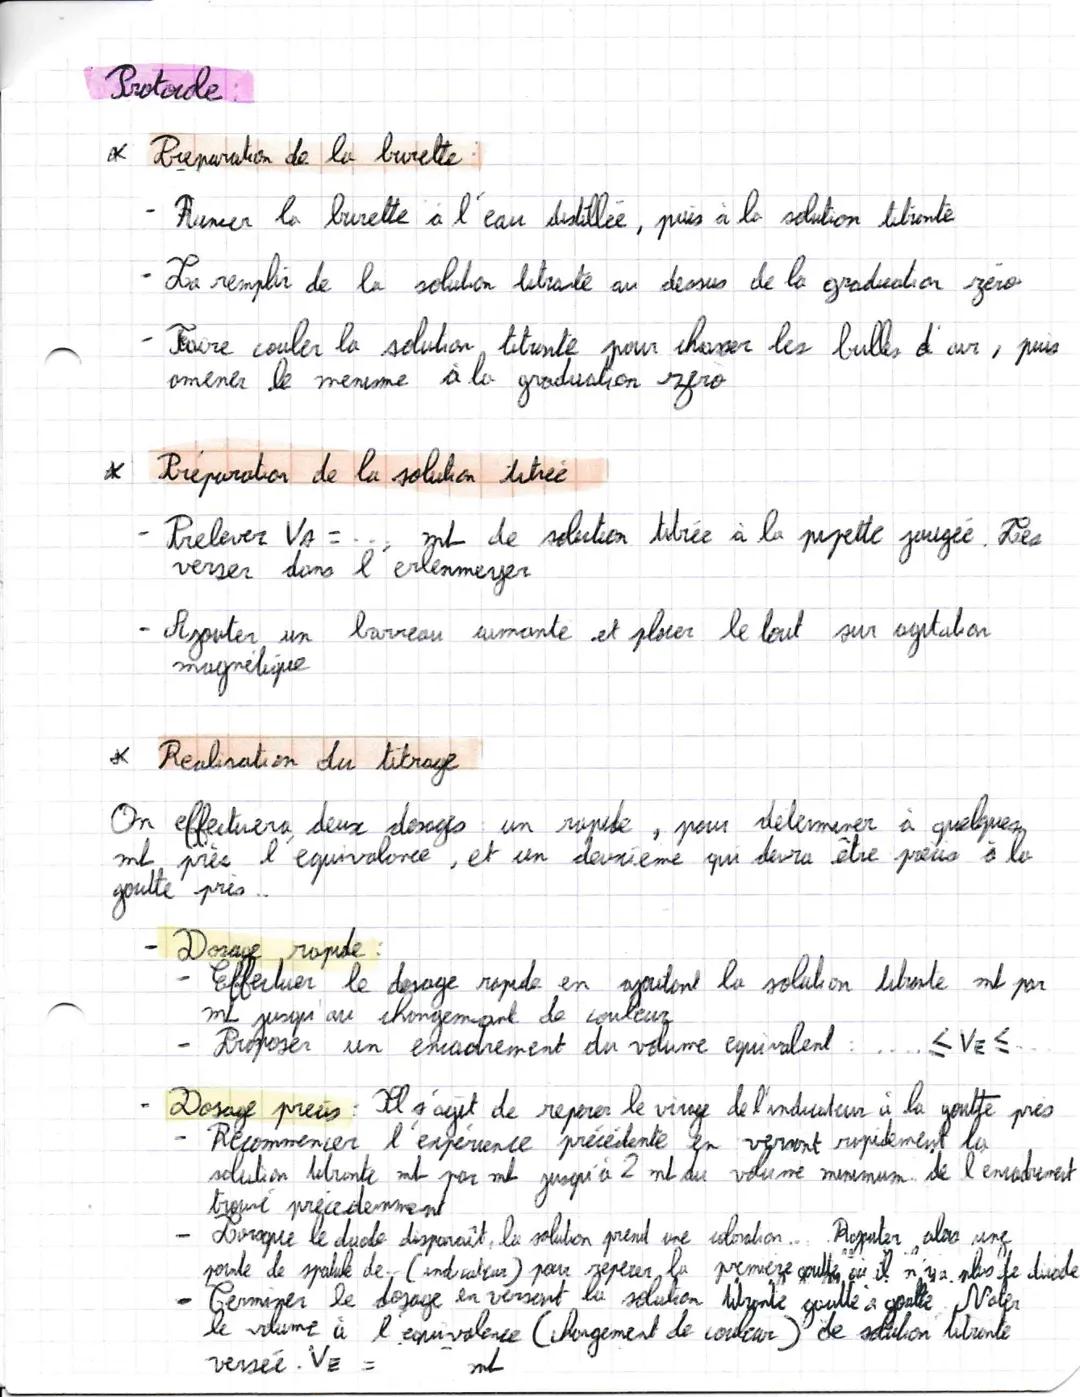 Protocole :
* Preparation de la burette :
- Rincer la burette à l'eau distillée, puis à la solution titrante
- La remplir de la solution titrante au dessus de la graduation zéro
- Faire couler la solution titrante pour chasser les bulles d'air, puis
amener le menisme à la graduation zéro
* Préparation de la solution titrée
- Prelever VA = ... mL de solution titrée à la pipette jaugée. Les
verser dans l'erlenmeyer
- Ajouter un barreau aimanté et placer le tout sur agitation
magnétique
* Realisation du titrage
On effectuera deux dosages : un rapide, pour déterminer à quelques
mL près l'équivalence, et un deuxième qui devra être précis à la
goutte près ..
- Dosage rapide :
- Effectuer le dosage rapide en ajoutant la solution titrante mL par
mL jusqu'au changement de couleur
- Proposer un encadrement du volume equivalent : .... ≤ VE ≤ ...
- Dosage précis : Il s'agit de reperer le virage de l'indicateur à la goutte près
- Recommencer l'expérience précédente en versant rapidement la
solution titrante mL par mL jusqu'à 2 mL du volume minimum de l'encadrement
trouvé précedemment
- Lorsque le diode disparaît, la solution prend une coloration ... Rajouter alors une
pointe de spatule de .. (indicateur) pour repérer la première goutte où il n'y a plus de diode
- Terminer le dosage en versant la solution titrante goutte à goutte. Noter
le volume à l'équivalence (changement de couleur) de solution titrante
versée. VE = mL